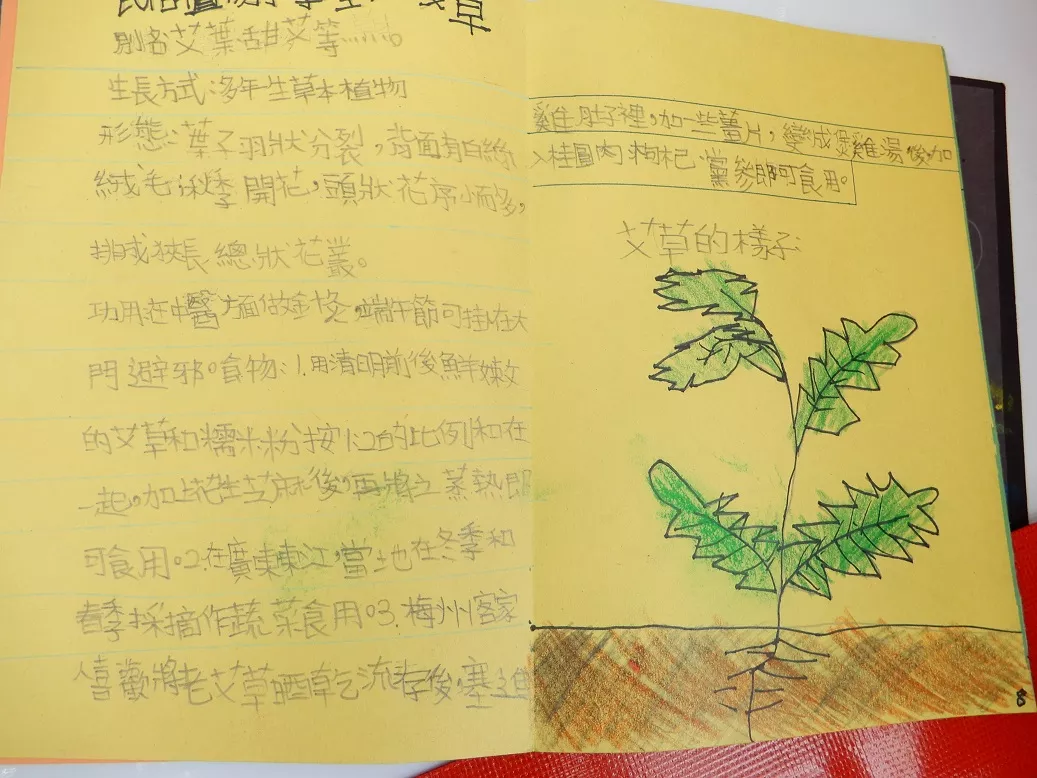 民俗植物學堂 艾草
別名艾葉、甜艾等……。
生長方式:多年生草本植物
形態:葉子羽狀分裂,背面有白絲
絨毛,秋季開花,頭狀花序小而多,
排成狹長總狀花叢。
功用在中醫方面做 ,端午節可掛在大
門避邪。食物:1.用清明前後鮮嫩
的艾草和糯米粉按1:2的比例和在
一起,加上花生芝麻後,再將之蒸熱即
可食用。2.在廣東東江,當土地在冬季和
春季採摘作蔬菜食用。3.梅州客家
人喜歡將老艾草晒乾 存後,塞進
雞肚子裡,加一些薑片,變成煲雞湯,後,加
入桂圓肉、枸杞、黨參即可食用。
艾草的樣子:
8